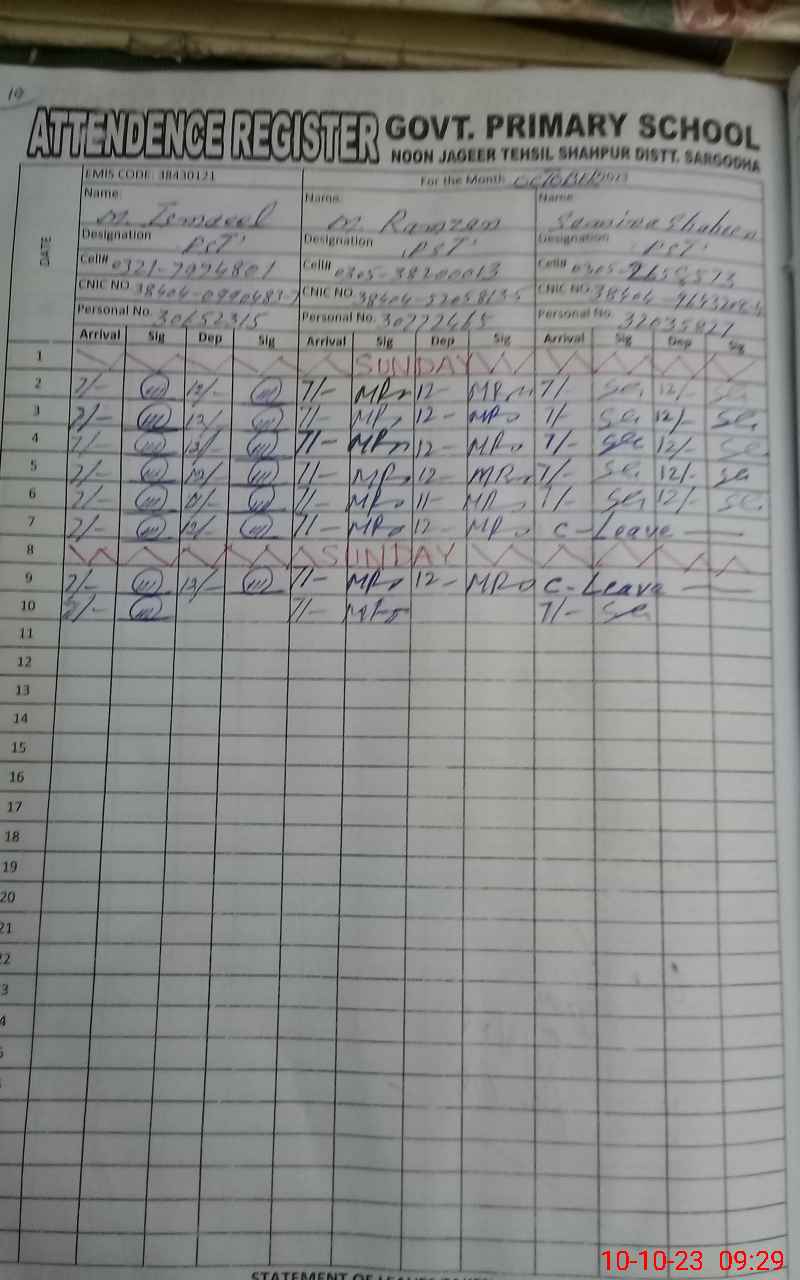 10
ATTENDENCE REGISTER GOVT. PRIMARY SCHOOL
NOON JAGEER TEHSIL SHAHPUR DISTT. SARGODHA
EMIS CODE: 38430121 For the Month OCTOBER 2023
DATE
Name: M. Ismaeel Name: M. Ramzan Name: Samina Shaheen
Designation PST Designation PST Designation PST
Cell# Cell# 0305-38200013 Cell#
CNIC NO. CNIC NO. CNIC NO.
Personal No. 30652315 Personal No. 30772465 Personal No. 32035827
Arrival Sig Dep Sig Arrival Sig Dep Sig Arrival Sig Dep Sig
1 SUNDAY
2 7/- 12/- 7/- MR 12- MR 7/- Sa 12/- Sa
3 7/- 12/- 7/- MR 12- MR 7/- Sa 12/- Sa
4 7/- 12/- 7/- MR 12- MR 7/- Sa 12/- Sa
5 7/- 12/- 7/- MR 12- MR 7/- Sa 12/- Sa
6 7/- 11/- 7/- MR 11- MR 7/- Sa 12/- Sa
7 7/- 12/- 7/- MR 12- MR C-Leave
8 SUNDAY
9 7/- 12/- 7/- MR 12- MR C-Leave
10 7/- 7/- MR 7/- Sa
11
12
13
14
15
16
17
18
19
20
21
22
3
4
STATEMENT OF LEAVES
10-10-23 09:29